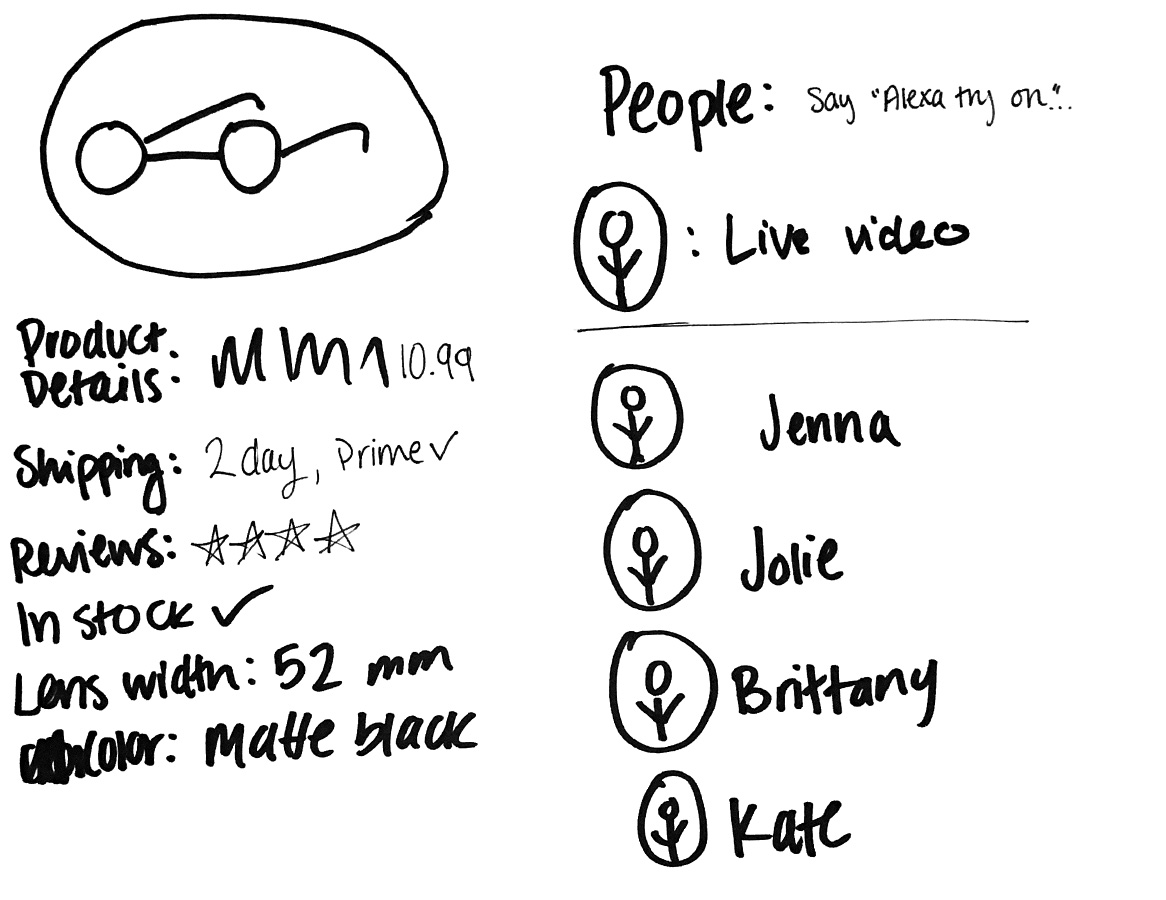 Product
Details: 10.99
Shipping: 2 day, Prime ✓
Reviews: ☆☆☆☆
In stock ✓
Lens width: 52 mm
Color: Matte black
People: Say "Alexa try on"...
: Live video
Jenna
Jolie
Brittany
Kate